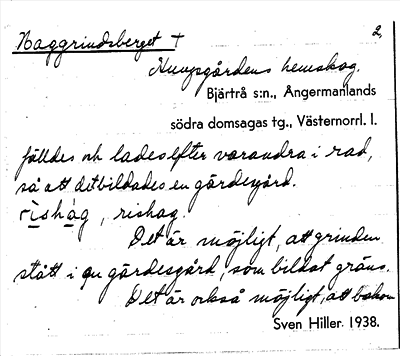 Naggrindsberget † 2,
Kungsgårdens hemskog.
Bjärtrå s:n., Ångermanlands
södra domsagas tg., Västernorrl. l.
fälldes och lades efter varandra i rad,
så att det bildades en gärdesgård.
rishag, rishag.
Det är möjligt, att grinden
stått i en gärdesgård, som bildat gräns.
Det är också möjligt, att bakom
Sven Hiller 1938.